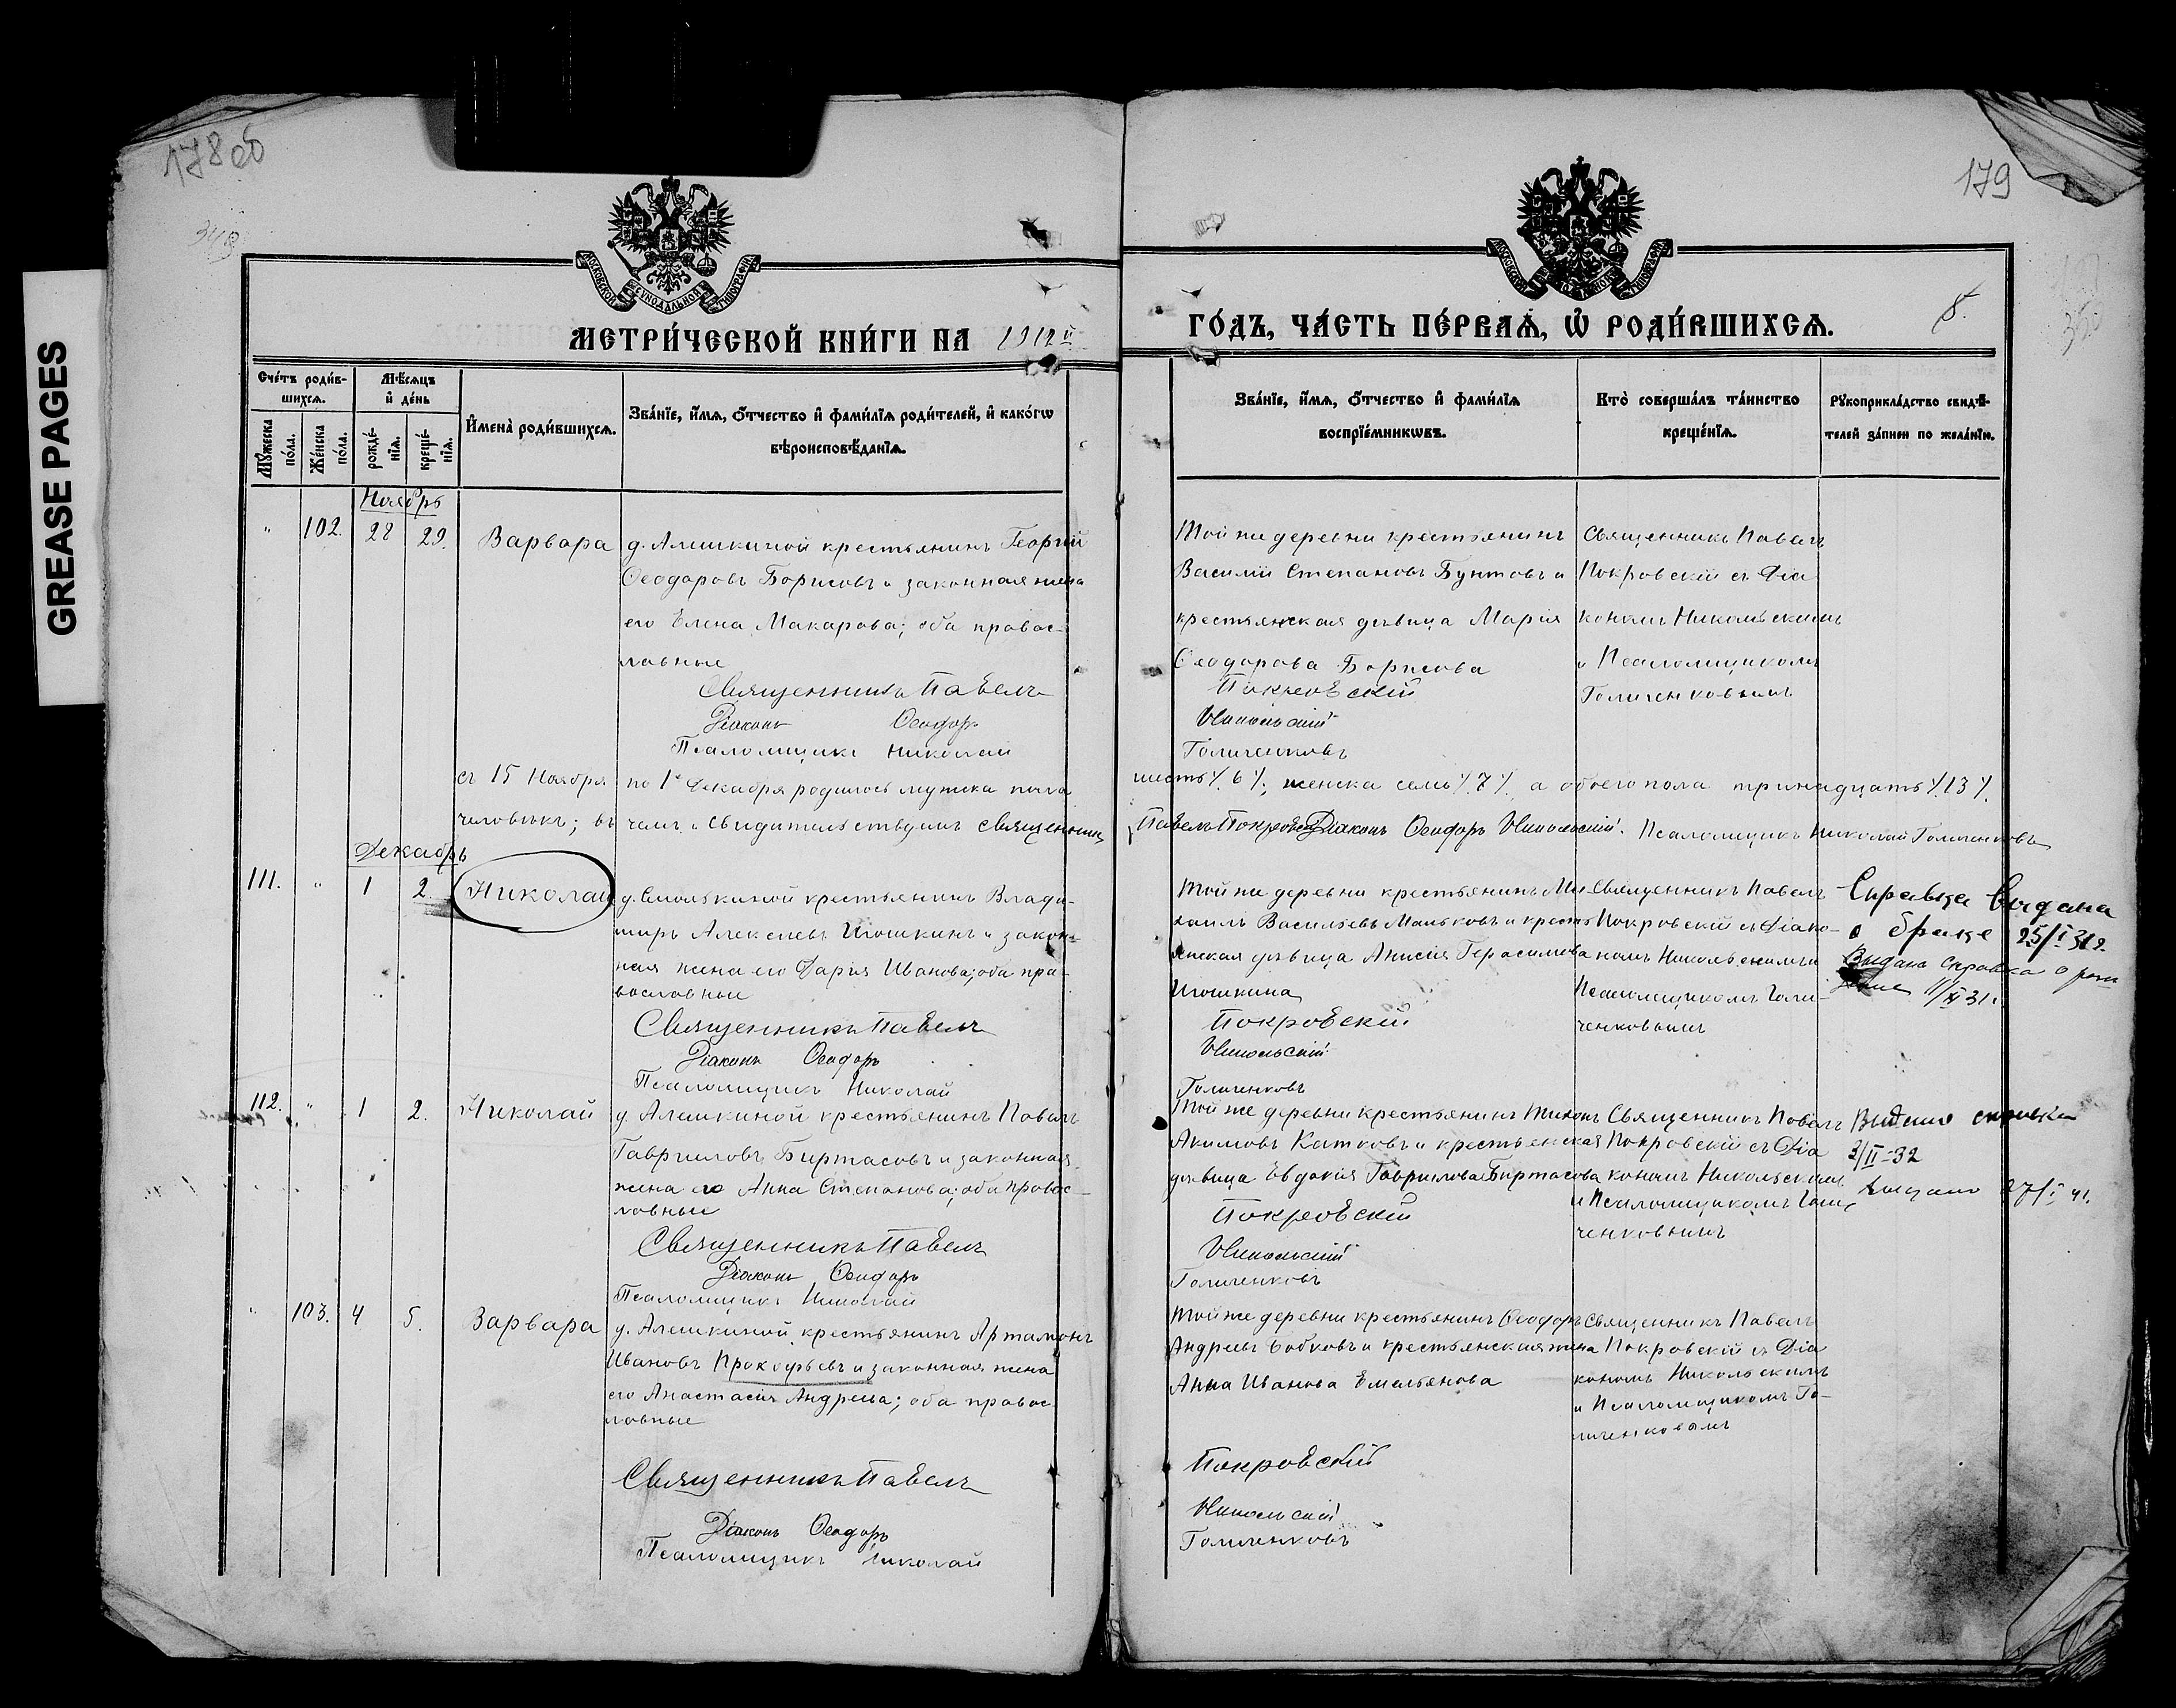 GREASE PAGES
178 об
179
МОСКОВСКОЙ СѴНОДАЛЬНОЙ ТИПОГРАФІИ
МЕТРИ́ЧЕСКОЙ КНИ́ГИ НА 1912й
ГО́ДЪ, ЧА́СТЬ ПЕ́РВАѦ, Ѡ҆ РОДИ́ВШИХСѦ.
8.
Сче́тъ роди́в-
шихсѧ.
Мѣ́сѧцъ
и҆ де́нь
Мꙋ́жеска
по́ла.
Же́нска
по́ла.
рожде́-
нїѧ.
креще́-
нїѧ.
И҆мена̀ роди́вшихсѧ.
Зва́нїе, и҆́мѧ, ѻ҆́тчество и҆ фами́лїѧ роди́телей, и҆ како́гѡ
вѣроисповѣ́данїѧ.
Зва́нїе, и҆́мѧ, ѻ҆́тчество и҆ фами́лїѧ
воспрїе́мникѡвъ.
Кто̀ соверша́лъ та́инство
креще́нїѧ.
Рꙋкоприкла́дство свидѣ́-
телей за́писи по жела́нїю.
Ноябрь
" 102. 28 29. Варвара
д. Алешкиной крестьянинъ Георгій
Ѳеодоровъ Борисовъ и законная жена
его Елена Макарова; оба правос-
лавные
Священникъ Павелъ
Діаконъ Ѳеодоръ
Псаломщикъ Николай
Той же деревни крестьянинъ
Василій Степановъ Бунтовъ и
крестьянская дѣвица Марія
Ѳеодорова Борисова
Покровскій
Никольскій
Голиченковъ
Священникъ Павелъ
Покровскій съ Діа
кономъ Никольскимъ
и Псаломщикомъ
Голиченковымъ
съ 15 Ноября по 1е Декабря родилось мужска пола шесть ٪ 6 ٪, женска семь ٪ 7 ٪, а обоего пола тринадцать ٪ 13 ٪
человѣкъ; въ чемъ и свидительствуемъ священникъ Павелъ Покровскій Діаконъ Ѳеодоръ Никольскій. Псаломщикъ Николай Голиченковъ
Декабрь
111. " 1 2. Николай
д. Смолькиной крестьянинъ Влади-
миръ Алексѣевъ Игошкинъ и закон-
ная жена его Дарія Иванова; оба пра-
вославные
Священникъ Павелъ
Діаконъ Ѳеодоръ
Псаломщикъ Николай
Той же деревни крестьянинъ Ми
хаилъ Васильевъ Мальковъ и кресть
янская дѣвица Анисія Герасимова
Игошкина
Покровскій
Никольскій
Голиченковъ
Священникъ Павелъ
Покровскій съ Діако-
номъ Никольскимъ и
Псаломщикомъ Голи-
ченковымъ
Справка выдана
о браке 25/I 32.
Выдана справка о рож
112. " 1 2. Николай
д. Алешкиной крестьянинъ Павелъ
Гавриловъ Биртасовъ и законная
жена его Анна Степанова; оба правос-
лавные
Священникъ Павелъ
Діаконъ Ѳеодоръ
Псаломщикъ Николай
Той же деревни крестьянинъ Тихонъ
Акимовъ Катковъ и крестьянская
дѣвица Евдокія Гаврилова Биртасова
Покровскій
Никольскій
Голиченковъ
Священникъ Павелъ
Покровскій съ Діа
кономъ Никольскимъ
и Псаломщикомъ Голи
ченковымъ
Выдана справка
3/II-32
Выдано 27/I 41.
" 103. 4 5. Варвара
д. Алешкиной крестьянинъ Артамонъ
Ивановъ Прокофьевъ и законная жена
его Анастасія Андреева; оба правос-
лавные
Священникъ Павелъ
Діаконъ Ѳеодоръ
Псаломщикъ Николай
Той же деревни крестьянинъ Ѳеодоръ
Андреевъ Бобковъ и крестьянская жена
Анна Иванова Емельянова
Покровскій
Никольскій
Голиченковъ
Священникъ Павелъ
Покровскій съ Діа
кономъ Никольскимъ
и Псаломщикомъ Го-
личенковымъ